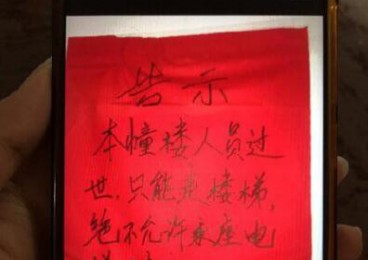 告示
本幢楼人员过
世,只能走楼梯,
绝不允许乘座电